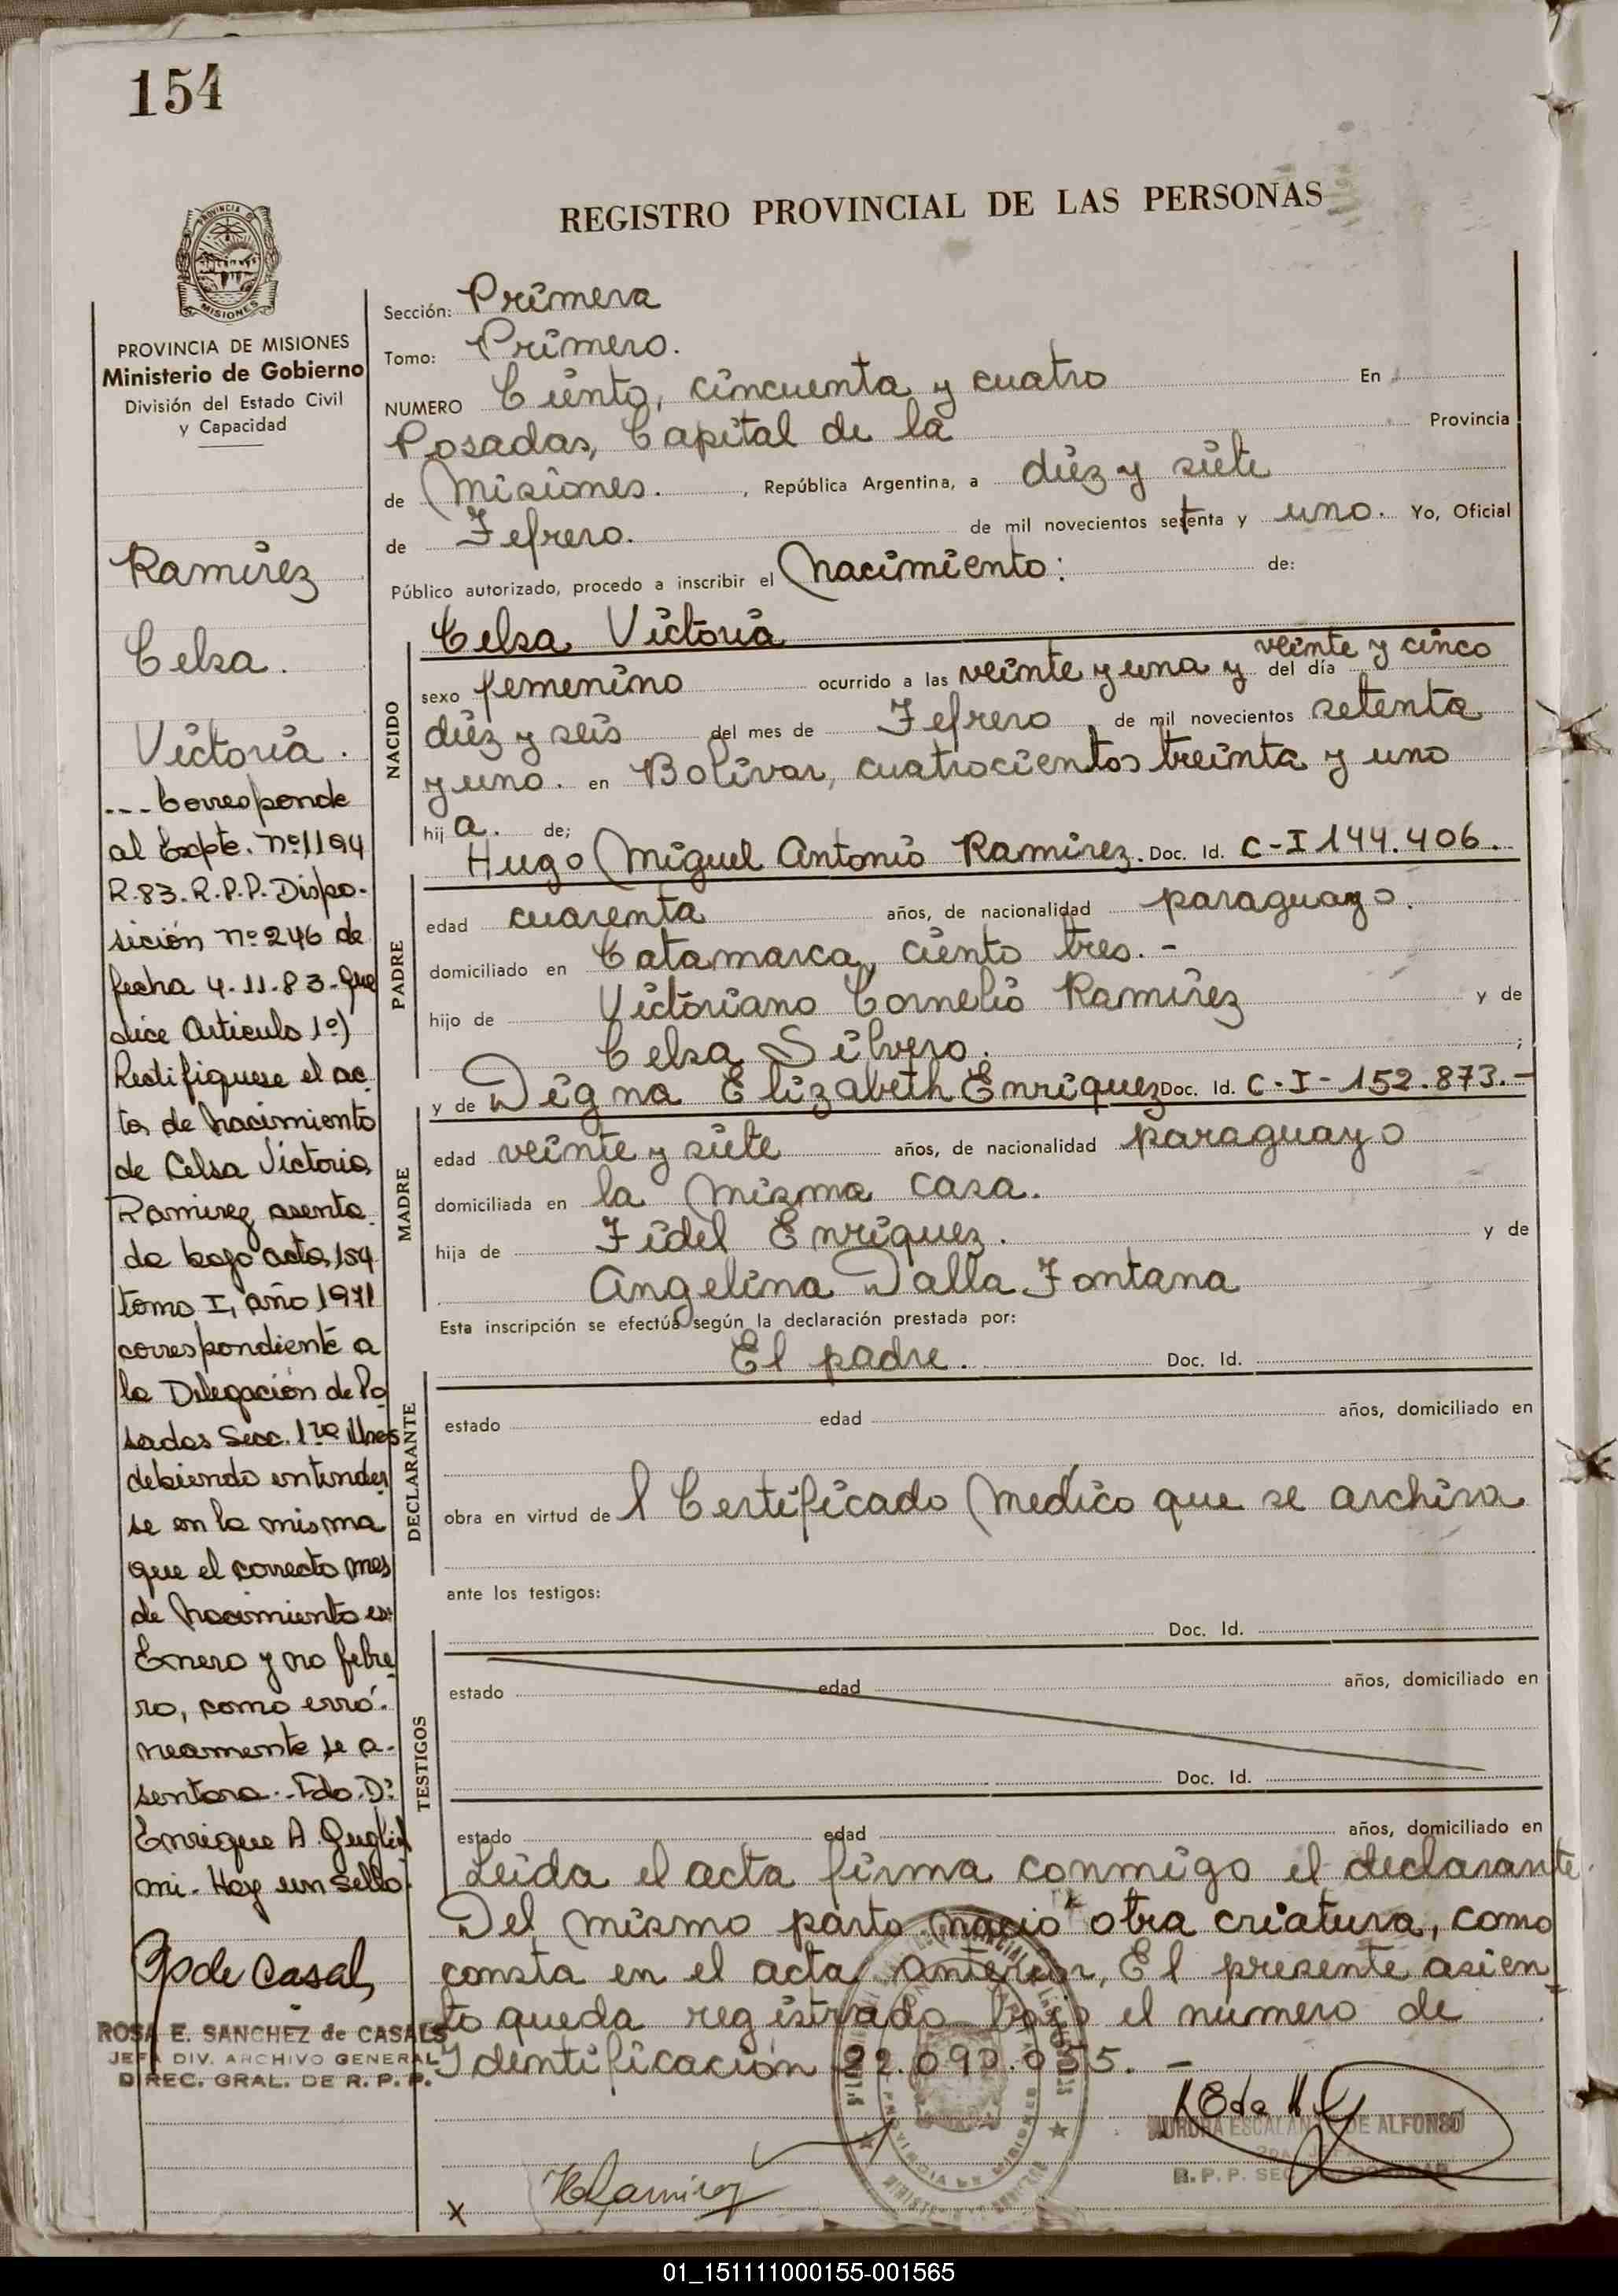 154
REGISTRO PROVINCIAL DE LAS PERSONAS
PROVINCIA DE
MISIONES
PROVINCIA DE MISIONES
Ministerio de Gobierno
División del Estado Civil
y Capacidad
Ramírez
Celsa.
Victoria.
--- Corresponde
al Expte. nº 1194
R.83.R.P.P. Dispo-
sición nº 246 de
fecha 4.11.83-que
dice Articulo 1º)
Rectifiquese el ac
ta de nacimiento
de Celsa Victoria
Ramirez asenta
da bajo acta 154
tomo I, año 1971
correspondiente a
la Delegación de Po
sadas Secc. 1ra Mnes
debiendo entender
se en la misma
que el correcto mes
de nacimiento es:
Enero y no febre
ro, como erró-
neamente se a-
sentara.-Fdo. Dr.
Enrique A. Gugliel
mi. Hay un Sello.
ROSA E. SANCHEZ de CASALS
JEFA DIV. ARCHIVO GENERAL
DIREC. GRAL. DE R. P. P.
Sección: Primera
Tomo: Primero.
NUMERO Ciento, cincuenta y cuatro En
Posadas, Capital de la Provincia
de Misiones. , República Argentina, a diez y siete
de Fefrero. de mil novecientos setenta y uno. Yo, Oficial
Público autorizado, procedo a inscribir el nacimiento: de:
NACIDO
Celsa Victoria
sexo femenino ocurrido a las veinte y una y veinte y cinco del día
diez y seis del mes de Fefrero , de mil novecientos setenta
y uno. en Bolívar, cuatrocientos treinta y uno
hij a. de;
PADRE
Hugo Miguel Antonio Ramírez. Doc. Id. C-I 144.406.
edad cuarenta años, de nacionalidad paraguayo.
domiciliado en Catamarca, ciento tres.-
hijo de Victoriano Cornelio Ramírez y de
Celsa Silvero. ;
MADRE
y de Digna Elizabeth Enríquez Doc. Id. C-I-152.873.-
edad veinte y siete años, de nacionalidad paraguayo
domiciliada en la misma casa.
hija de Fidel Enríquez. y de
Angelina Dalla Fontana
Esta inscripción se efectúa según la declaración prestada por:
DECLARANTE
El padre. Doc. Id.
estado edad años, domiciliado en
obra en virtud de l Certificado Medico que se archiva
ante los testigos:
TESTIGOS
Doc. Id.
estado edad años, domiciliado en
Doc. Id.
estado edad años, domiciliado en
Leida el acta firma conmigo el declarante.
Del mismo parto nacio otra criatura, como
consta en el acta anterior, El presente asien
to queda registrado bajo el numero de
Identificación 22.090.055. -
AURORA ESCALANTE DE ALFONSO
HRamirez
x
01_151111000155-001565